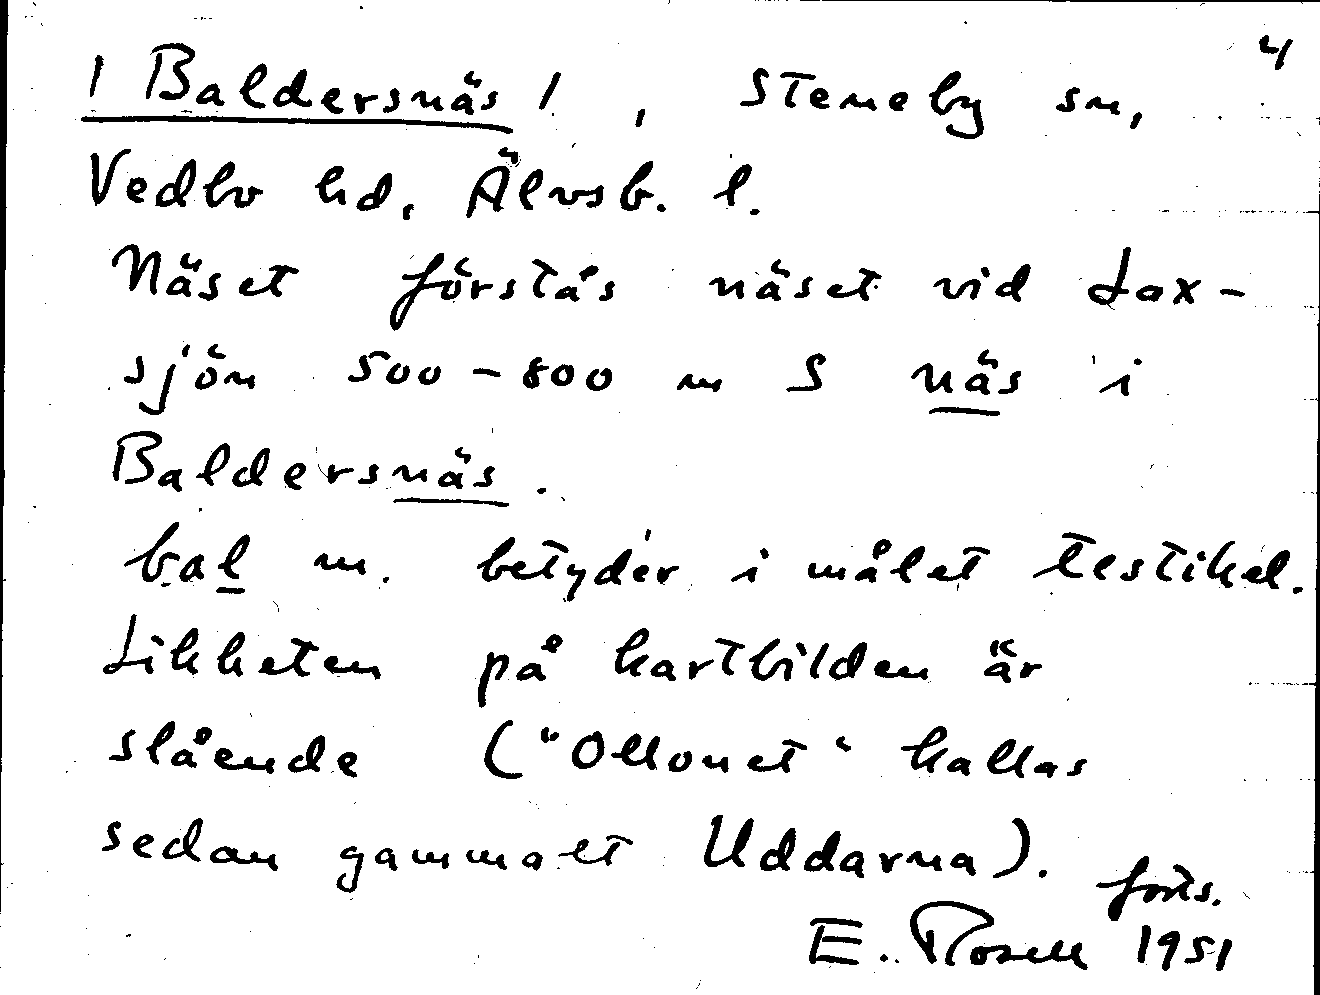 4
/ Baldersnäs /, Steneby sn,
Vedbo hd, Älvsb. l.
Näset förstås näset vid Lax-
sjön 500-800 m S näs i
Baldersnäs.
bal m. betyder i målet testikel.
Likheten på kartbilden är
slående ("Ollonet" kallas
sedan gammalt Uddarna).
forts.
E. Rosell 1951